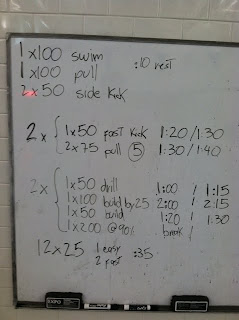 1x100 swim :10 rest
1x100 pull
2x50 side kick
2x { 1x50 fast kick 1:20/1:30
2x75 pull (5) 1:30/1:40
2x { 1x50 drill 1:00 / 1:15
1x100 build by 25 2:00 / 2:15
1x50 build 1:20 / 1:30
1x200 @90% break
12x25 1 easy :35
2 fast
EXPO